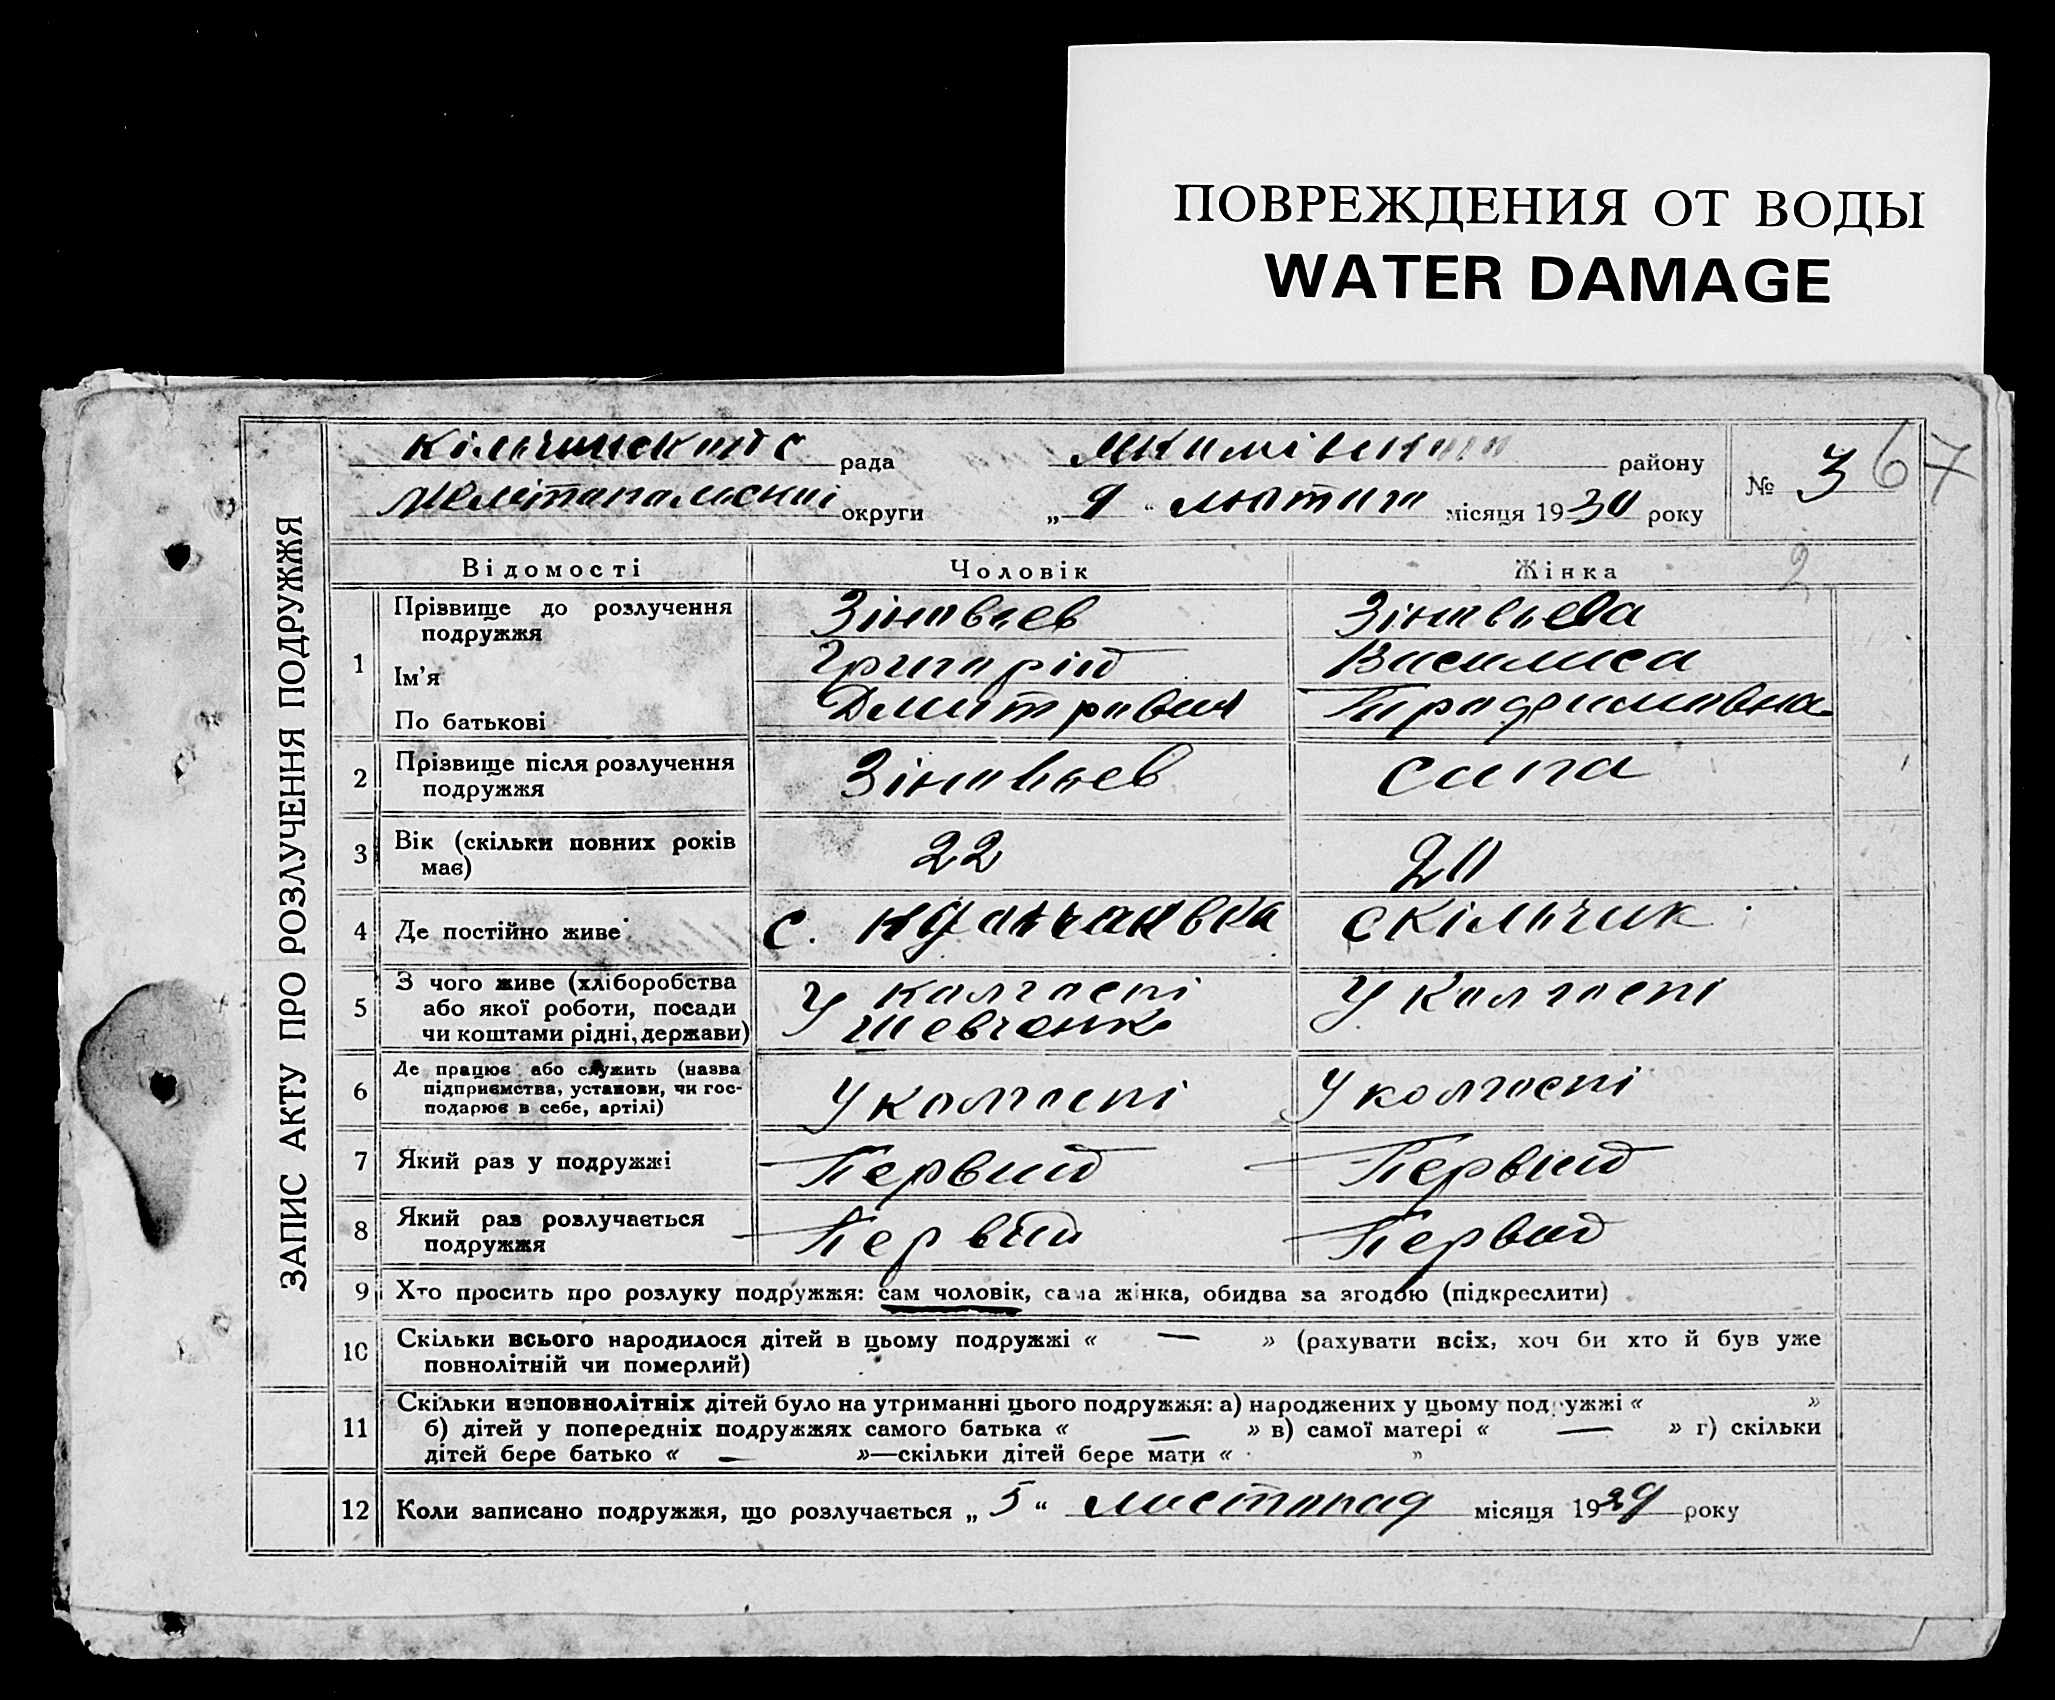 ПОВРЕЖДЕНИЯ ОТ ВОДЫ
WATER DAMAGE
ЗАПИС АКТУ ПРО РОЗЛУЧЕННЯ ПОДРУЖЖЯ
рада району № 3 67
округи „9“ лютого місяця 1930 року
Відомості Чоловік Жінка 2
1 Прізвище до розлучення подружжя Зіновьев Зіновьева
Ім'я Григорій Василиса
По батькові Дмитрович
2 Прізвище після розлучення подружжя Зіновьев
3 Вік (скільки повних років має) 22 20
4 Де постійно живе с. с Кільчик
5 З чого живе (хліборобства або якої роботи, посади чи коштами рідні, держави) У колгоспі Шевченко У колгоспі
6 Де працює або служить (назва підприємства, установи, чи господарює в себе, артілі) У колгоспі У колгоспі
7 Який раз у подружжі Первий Первий
8 Який раз розлучається подружжя Первий Первий
9 Хто просить про розлуку подружжя: сам чоловік, сама жінка, обидва за згодою (підкреслити)
10 Скільки всього народилося дітей в цьому подружжі « — » (рахувати всіх, хоч би хто й був уже
повнолітній чи померлий)
11 Скільки неповнолітніх дітей було на утриманні цього подружжя: а) народжених у цьому подружжі « »
б) дітей у попередніх подружжях самого батька « — » в) самої матері « — » г) скільки
дітей бере батько « — »—скільки дітей бере мати « »
12 Коли записано подружжя, що розлучається „5“ листопад місяця 1929 року